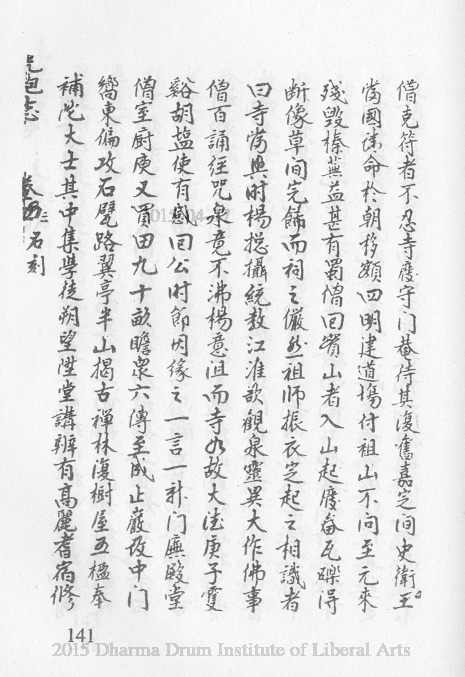 僧克符者不忍寺廢守門菴待其復舊嘉定間史衛王
當國請命於朝移額四明建道場付祖山不問至元來
殘毀榛蕪益甚有蜀僧曰寶山者入山起廢畚瓦礫得
斷像草間完餙而祠之儼然祖師振衣定起之相識者
曰寺當興時楊揔攝統教江淮欲觀泉靈異大作佛事
僧百誦經咒泉竟不沸楊意沮而寺如故大德庚子雙
谿胡塩使有感回公時節因緣之一言一新門廡殿堂
僧室厨庾又買田九十畝瞻衆六傳至成止嚴改中門
嚮東偏攻石甓路翼亭半山揭古禪林復樹屋五楹奉
補陀大士其中集學徒朔望陞堂講辨有高麗耆宿修
虎跑志 卷五三 石刻
141
2015 Dharma Drum Institute of Liberal Arts